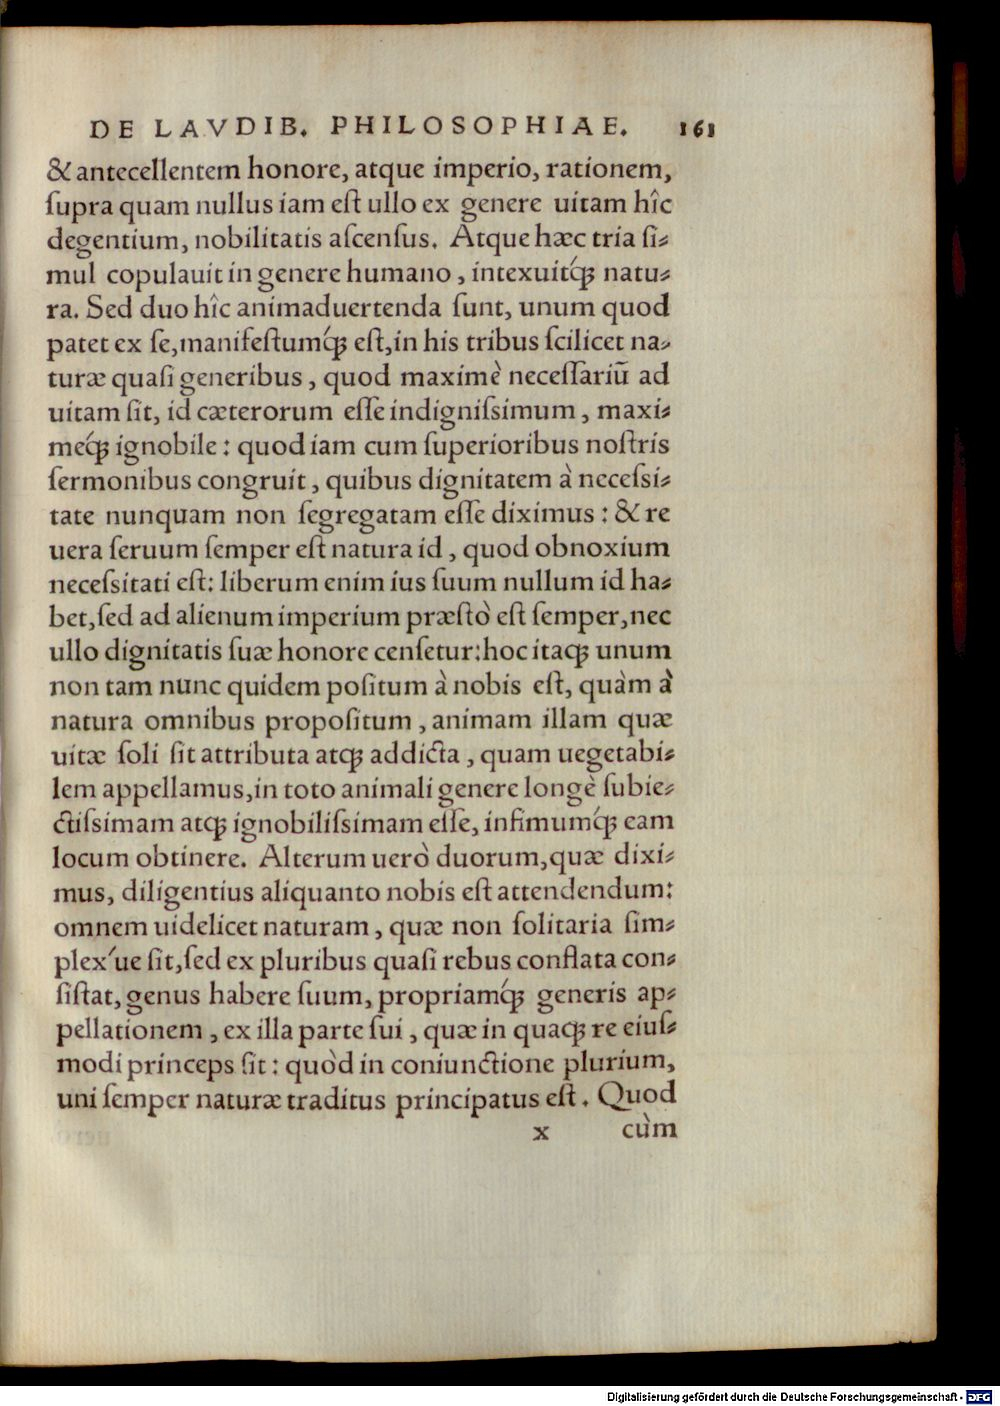 DE LAVDIB. PHILOSOPHIAE. 161
& antecellentem honore, atque imperio, rationem,
ſupra quam nullus iam eſt ullo ex genere uitam hîc
degentium, nobilitatis aſcenſus. Atque hæc tria ſi-
mul copulauit in genere humano, intexuitq́; natu-
ra. Sed duo hîc animaduertenda ſunt, unum quod
patet ex ſe, manifeſtumq́; eſt, in his tribus ſcilicet na-
turæ quaſi generibus, quod maximè neceſſariũ ad
uitam ſit, id cæterorum eſſe indigniſsimum, maxi-
meq́; ignobile: quod iam cum ſuperioribus noſtris
ſermonibus congruit, quibus dignitatem à neceſsi-
tate nunquam non ſegregatam eſſe diximus: & re
uera ſeruum ſemper eſt natura id, quod obnoxium
neceſsitati eſt: liberum enim ius ſuum nullum id ha-
bet, ſed ad alienum imperium præſtò eſt ſemper, nec
ullo dignitatis ſuæ honore cenſetur: hoc itaq; unum
non tam nunc quidem poſitum à nobis eſt, quàm à
natura omnibus propoſitum, animam illam quæ
uitæ ſoli ſit attributa atq; addicta, quam uegetabi-
lem appellamus, in toto animali genere longè ſubie-
ctiſsimam atq; ignobiliſsimam eſſe, infimumq́; eam
locum obtinere. Alterum uerò duorum, quæ dixi-
mus, diligentius aliquanto nobis eſt attendendum:
omnem uidelicet naturam, quæ non ſolitaria ſim-
plex'ue ſit, ſed ex pluribus quaſi rebus conflata con-
ſiſtat, genus habere ſuum, propriamq́; generis ap-
pellationem, ex illa parte ſui, quæ in quaq; re eiuſ-
modi princeps ſit: quòd in coniunctione plurium,
uni ſemper naturæ traditus principatus eſt. Quod
x cùm
Digitalisierung gefördert durch die Deutsche Forschungsgemeinschaft - DFG